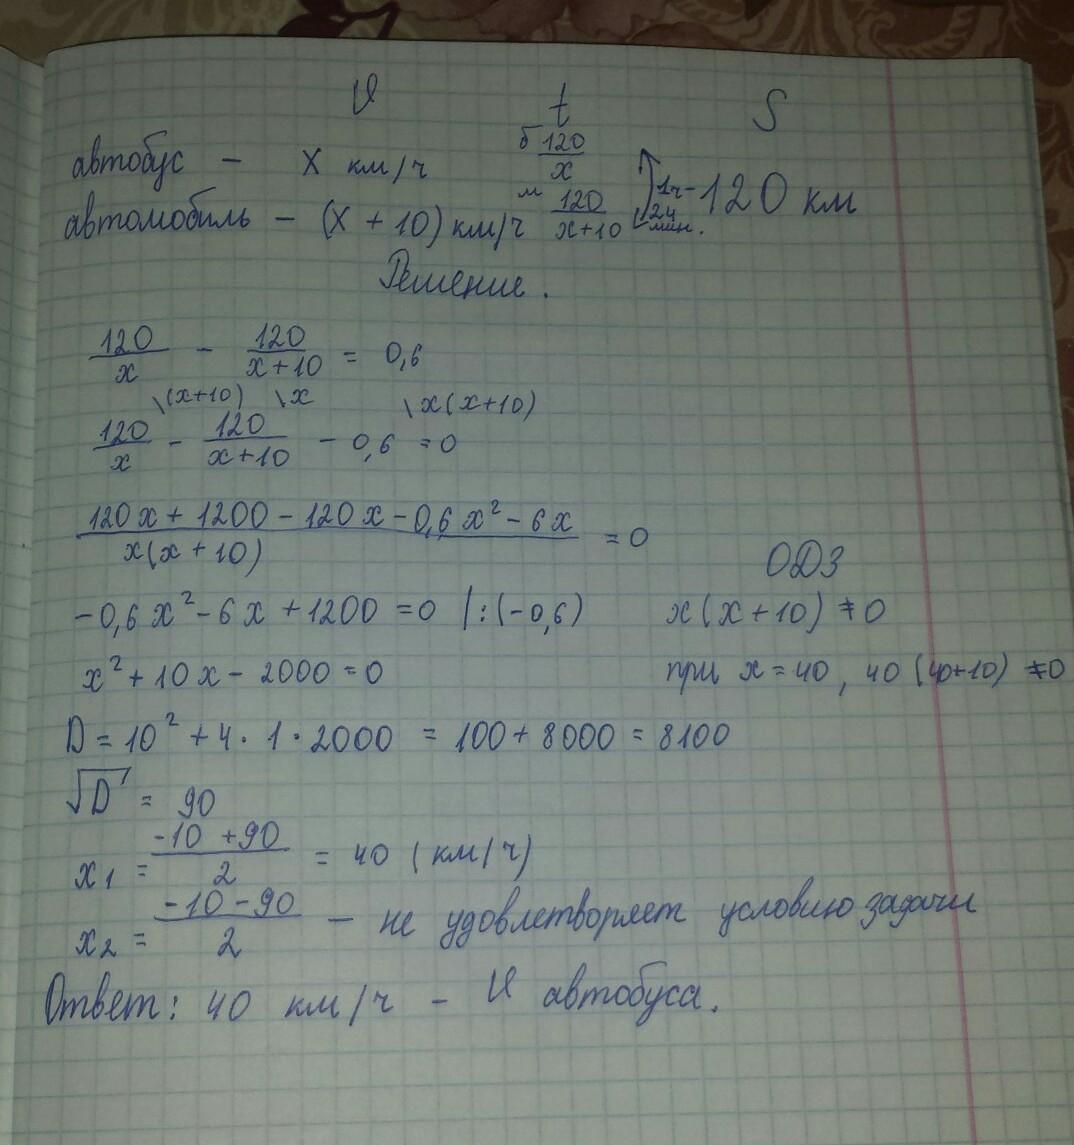 V t S
автобус – x км/ч б 120/x
автомобиль – (x + 10) км/ч м 120/x+10 1ч – 24 мин. 120 км
Решение.
120/x – 120/x+10 = 0,6
\(x+10) \x \x(x+10)
120/x – 120/x+10 – 0,6 = 0
120x + 1200 – 120x – 0,6x² – 6x / x(x + 10) = 0
ОДЗ
–0,6x² – 6x + 1200 = 0 |:(–0,6) x(x + 10) ≠ 0
x² + 10x – 2000 = 0 при x = 40, 40(40+10) ≠ 0
D = 10² + 4 · 1 · 2000 = 100 + 8000 = 8100
√D = 90
x1 = –10 + 90 / 2 = 40 (км/ч)
x2 = –10 – 90 / 2 – не удовлетворяет условию задачи
Ответ: 40 км/ч – V автобуса.